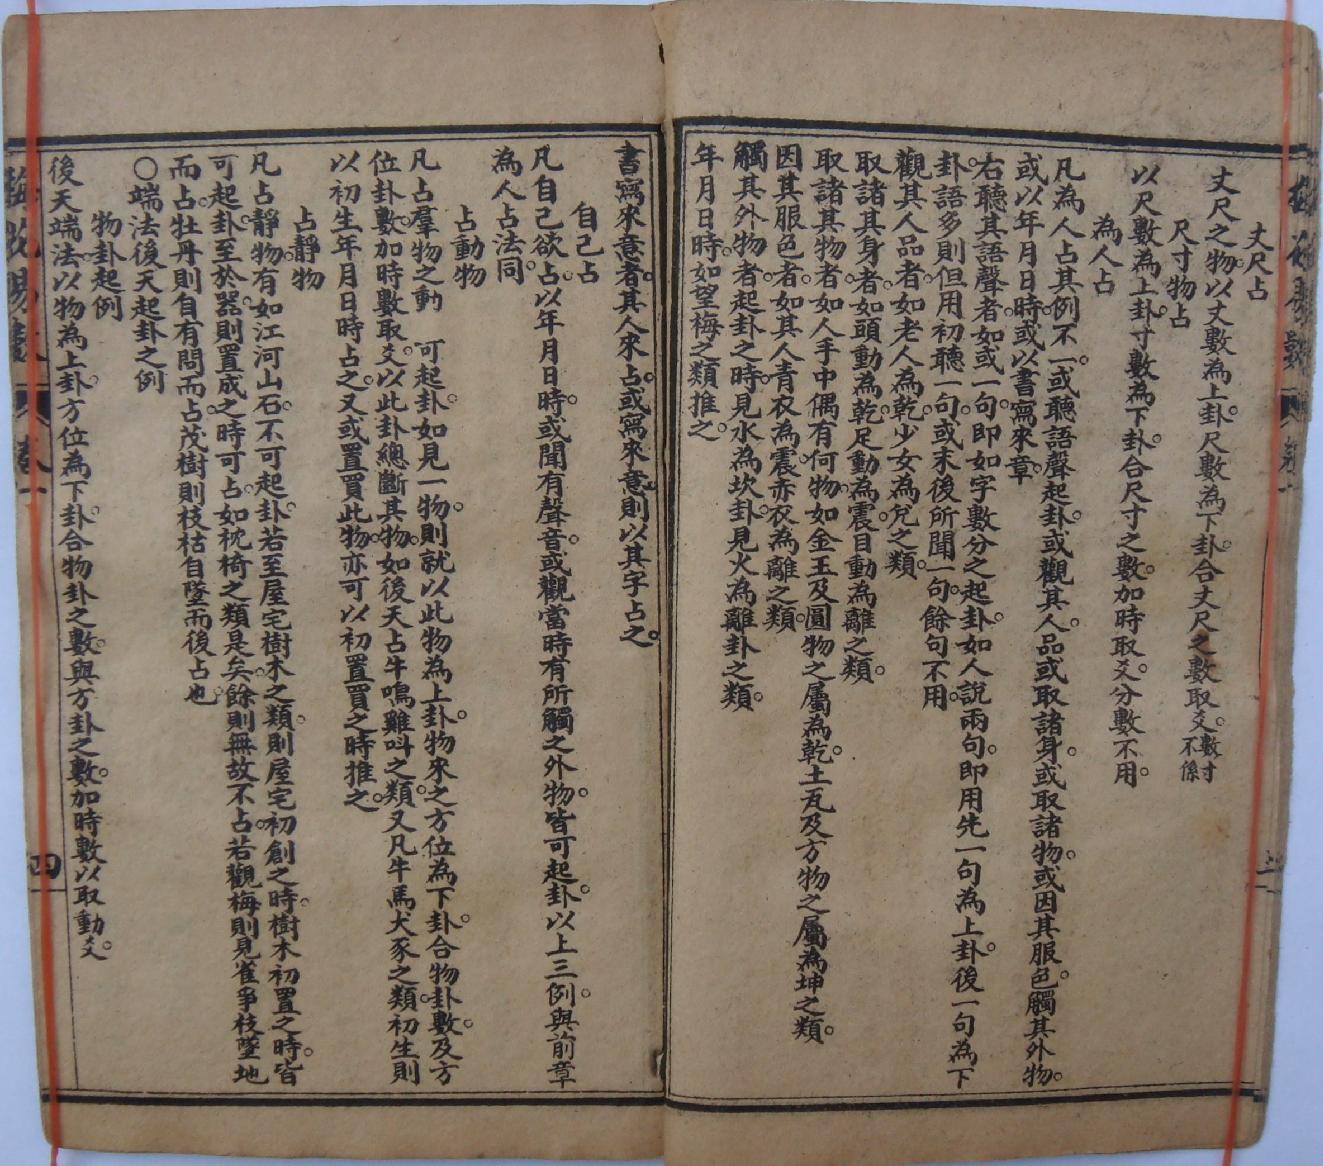 丈尺占
丈尺之物以丈數為上卦。尺數為下卦。合丈尺之數取爻。數寸不係
尺寸物占
以尺數為上卦。寸數為下卦。合尺寸之數。加時取爻。分數不用。
為人占
凡為人占其例不一。或聽語聲起卦。或觀其人品。或取諸身。或取諸物。或因其服色。觸其外物。
或以年月日時。或以書寫來章。
右聽其語聲者。如或一句。即如字數分之起卦。如人說兩句。即用先一句為上卦。後一句為下
卦。語多則但用初聽一句。或末後所聞一句。餘句不用。
觀其人品者。如老人為乾。少女為兌之類。
取諸其身者。如頭動為乾。足動為震。目動為離之類。
取諸其物者。如人手中偶有何物。如金玉及圓物之屬為乾。土瓦及方物之屬為坤之類。
因其服色者。如其人青衣為震。赤衣為離之類。
觸其外物者。起卦之時。見水為坎卦。見火為離卦之類。
年月日時。如望梅之類推之。
書寫來意者。其人來占。或寫來意。則以其字占之。
自己占
凡自己欲占。以年月日時。或聞有聲音。或觀當時有所觸之外物。皆可起卦。以上三例。與前章
為人占法同。
占動物
凡占羣物之動 可起卦。如見一物。則就以此物為上卦。物來之方位為下卦。合物卦數。及方
位卦數。加時數取爻。以此卦總斷其物。如後天占牛鳴雞叫之類。又凡牛馬犬豕之類。初生則
以初生年月日時占之。又或置買此物。亦可以初置買之時推之。
占靜物
凡占靜物。有如江河山石。不可起卦。若至屋宅樹木之類。則屋宅初創之時。樹木初置之時。皆
可起卦。至於器。則置成之時可占。如枕椅之類是矣。餘則無故不占。若觀梅則見雀爭枝墜地
而占。牡丹則自有問而占。茂樹則枝枯自墜而後占也。
○端法後天起卦之例
物卦起例
後天端法。以物為上卦。方位為下卦。合物卦之數。與方卦之數。加時數以取動爻。
卷一
四